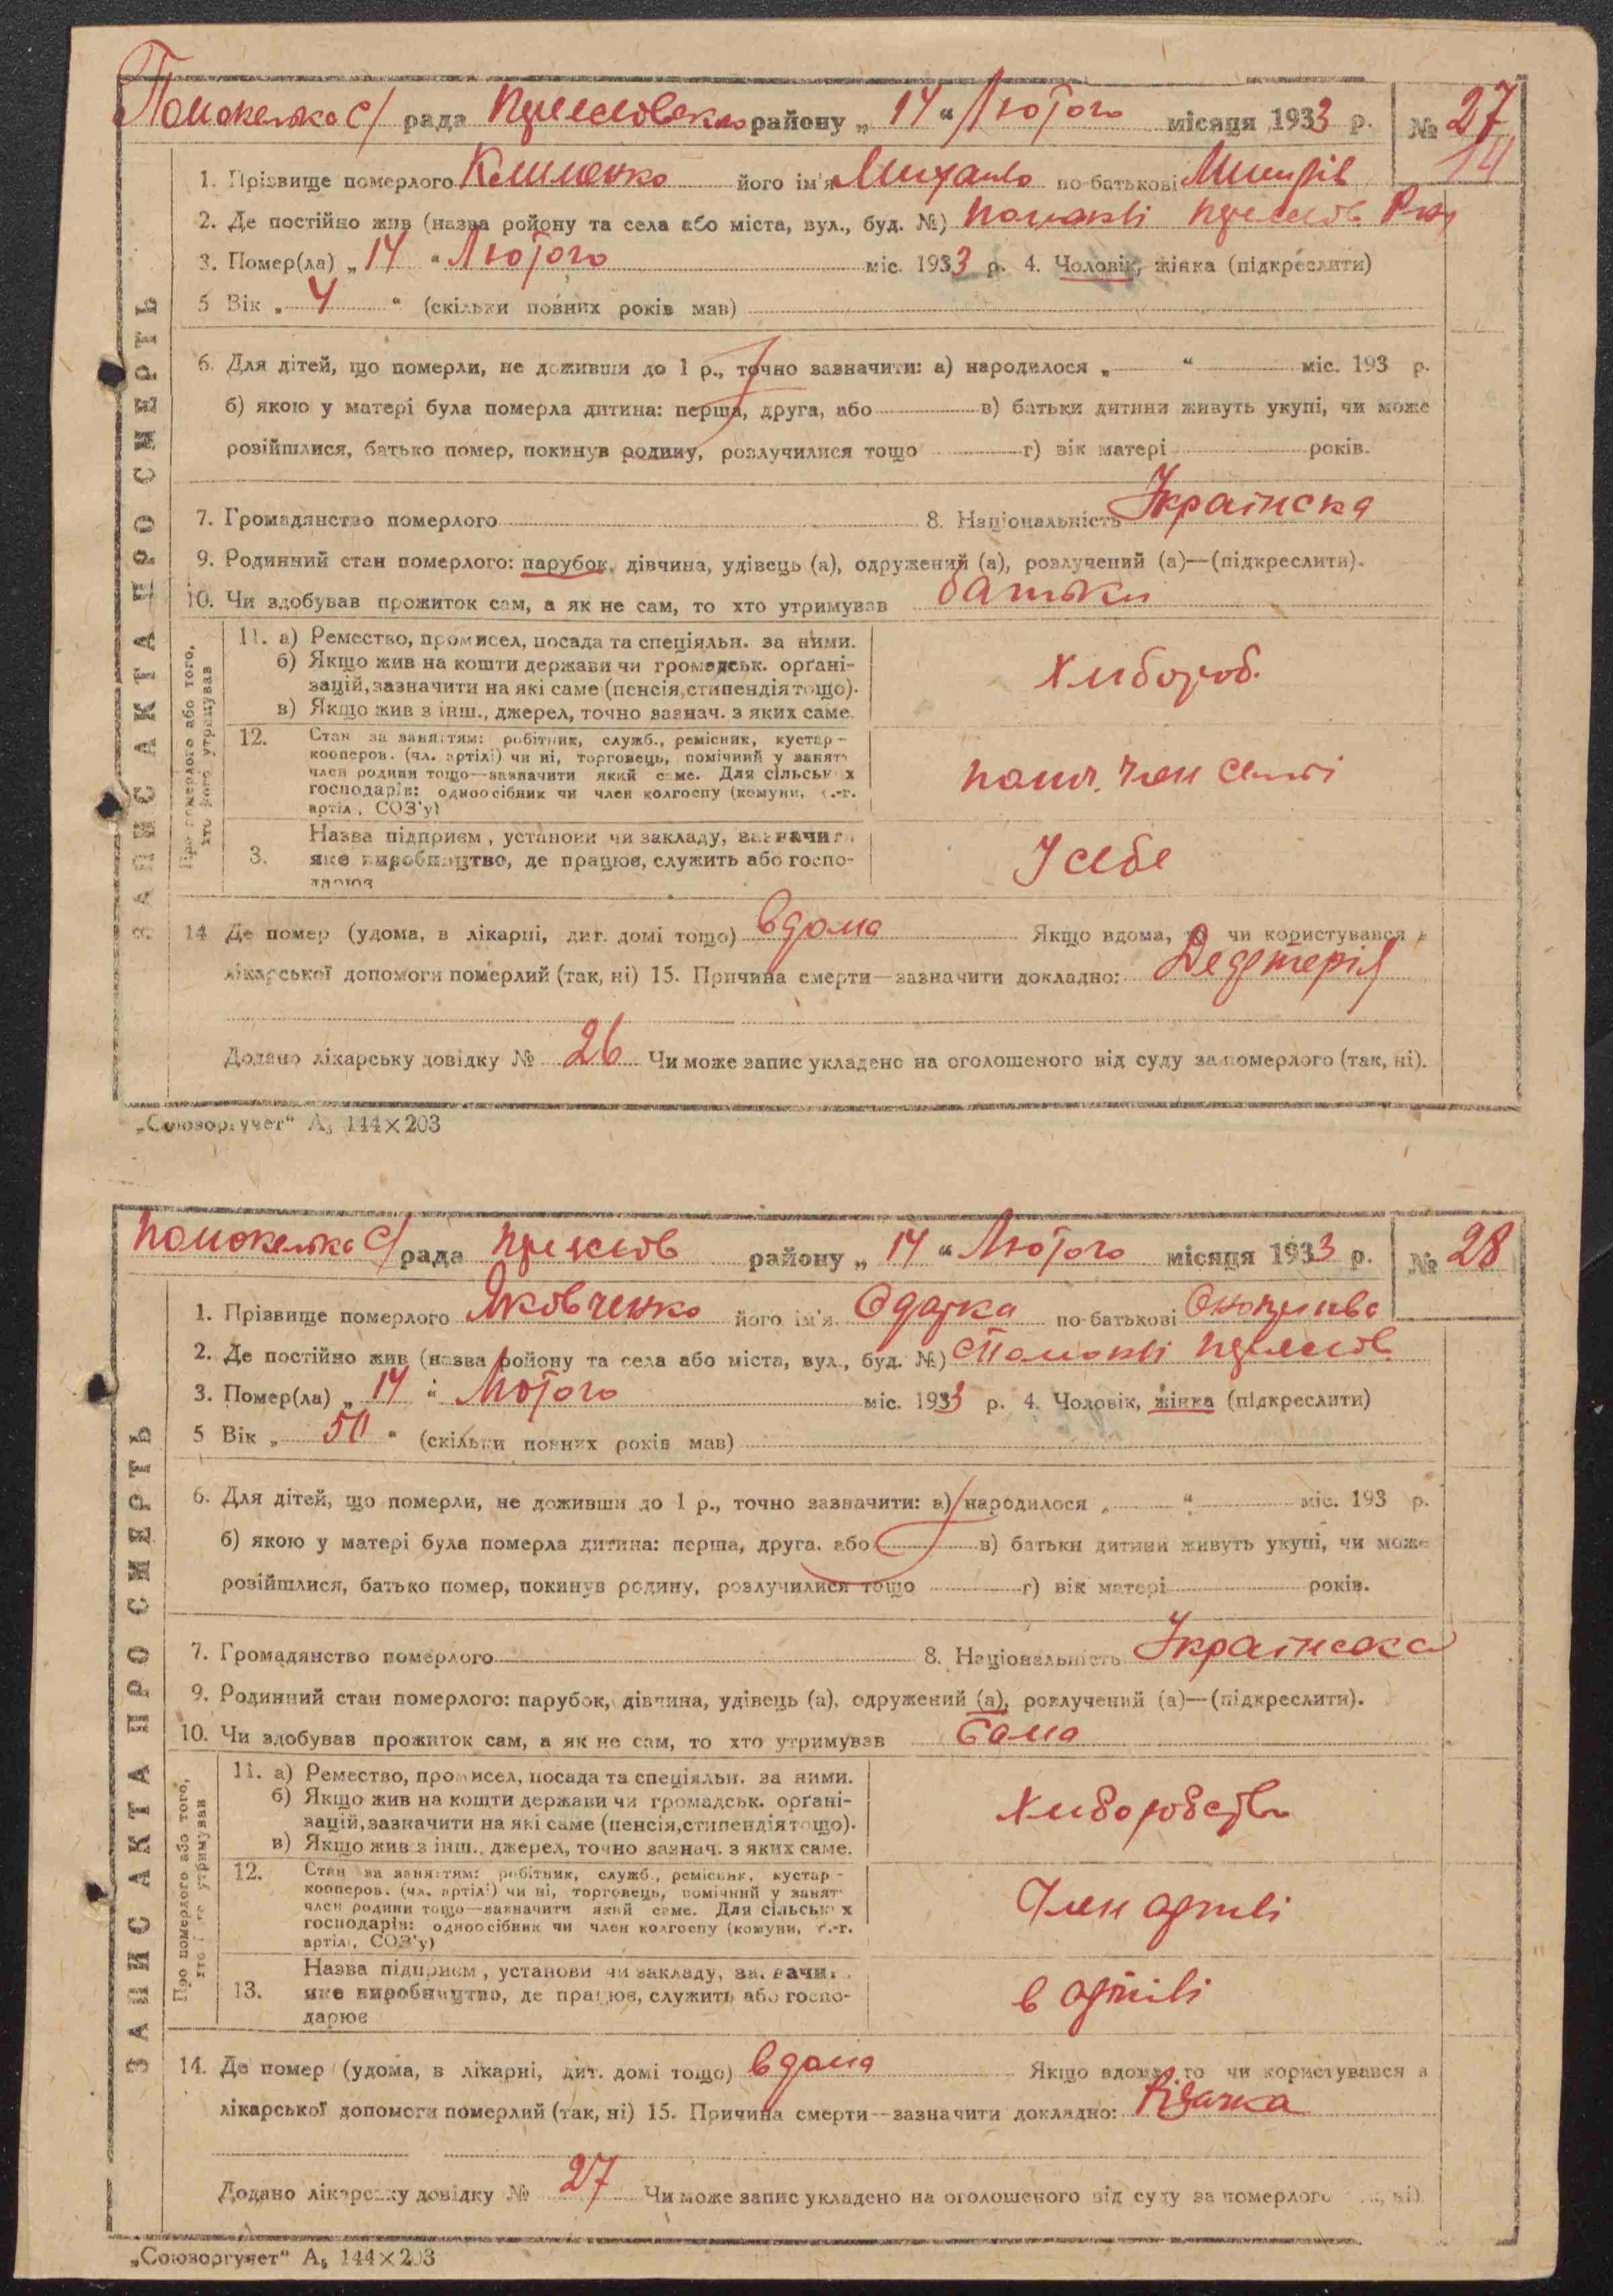 Помокельска с/ рада района „ 14 “ Лютого місяця 1933 р. № 27
14
1. Прізвище померлого Клименко його ім'я Михайло по-батькові
2. Де постійно жив (назва ройону та села або міста, вул., буд. №)
3. Помер(ла) „ 14 “ Лютого міс. 1933 р. 4. Чоловік, жінка (підкреслити)
5 Вік „ 4 “ (скільки повних років мав)
6. Для дітей, що померли, не доживши до 1 р., точно зазначити: а) народилося „ “ міс. 193 р.
б) якою у матері була померла дитина: перша, друга, або в) батьки дитини живуть укупі, чи може
розійшлися, батько помер, покинув родину, розлучилися тощо г) вік матері років.
7. Громадянство померлого 8. Національність Українска
9. Родинний стан померлого: парубок, дівчина, удівець (а), одружений (а), розлучений (а)—(підкреслити).
10. Чи здобував прожиток сам, а як не сам, то хто утримував батьки
Про померлого або того, хто його утримував
11. а) Ремество, промисел, посада та спеціяльн. за ними.
б) Якщо жив на кошти держави чи громадськ. органі-
зацій, зазначити на які саме (пенсія, стипендія тощо).
в) Якщо жив з інш., джерел, точно зазнач. з яких саме.
Хлибороб.
12. Стан за заняттям: робітник, служб., ремісник, кустар -
кооперов. (чл. артілі) чи ні, торговець, помічний у занят
член родини тощо—зазначити який саме. Для сільськ х
господарів: одноосібник чи член колгоспу (комуни, с.-г.
артіл , СОЗ'у)
член
3. Назва підприєм , установи чи закладу, зазначити
яке виробництво, де працює, служить або госпо-
дарює
У себе
14 Де помер (удома, в лікарні, дит. домі тощо) вдома Якщо вдома, то чи користувався з
лікарської допомоги померлий (так, ні) 15. Причина смерти—зазначити докладно: Дефтерія
Додано лікарську довідку № 26 Чи може запис укладено на оголошеного від суду за померлого (так, ні).
ЗАПИС АКТА ПРО СМЕРТЬ
„Союзоргучет“ А₅ 144×203
Помокельска с/ рада района „ 14 “ Лютого місяця 1933 р. № 28
1. Прізвище померлого Яковченко його ім'я Одарка по-батькові
2. Де постійно жив (назва ройону та села або міста, вул., буд. №)
3. Помер(ла) „ 14 “ Лютого міс. 1933 р. 4. Чоловік, жінка (підкреслити)
5 Вік „ 50 “ (скільки повних років мав)
6. Для дітей, що померли, не доживши до 1 р., точно зазначити: а) народилося „ “ міс. 193 р.
б) якою у матері була померла дитина: перша, друга. або в) батьки дитини живуть укупі, чи може
розійшлися, батько помер, покинув родину, розлучилися тощо г) вік матері років.
7. Громадянство померлого 8. Національність Українска
9. Родинний стан померлого: парубок, дівчина, удівець (а), одружений (а), розлучений (а)—(підкреслити).
10. Чи здобував прожиток сам, а як не сам, то хто утримував Сама
Про померлого або того, хто його утримував
11. а) Ремество, промисел, посада та спеціяльн. за ними.
б) Якщо жив на кошти держави чи громадськ. органі-
зацій, зазначити на які саме (пенсія, стипендія тощо).
в) Якщо жив з інш., джерел, точно зазнач. з яких саме.
Хлиборобство
12. Стан за заняттям: робітник, служб., ремісник, кустар -
кооперов. (чл. артілі) чи ні, торговець, помічний у занят
член родини тощо—зазначити який саме. Для сільськ х
господарів: одноосібник чи член колгоспу (комуни, с.-г.
артіл , СОЗ'у)
Член артилі
13. Назва підприєм , установи чи закладу, зазначи
яке виробництво, де працює, служить або госпо-
дарює
в артилі
14. Де помер (удома, в лікарні, дит. домі тощо) вдома Якщо вдома, то чи користувався з
лікарської допомоги померлий (так, ні) 15. Причина смерти—зазначити докладно:
Додано лікарську довідку № 27 Чи може запис укладено на оголошеного від суду за померлого ні).
ЗАПИС АКТА ПРО СМЕРТЬ
„Союзоргучет“ А₅ 144×203